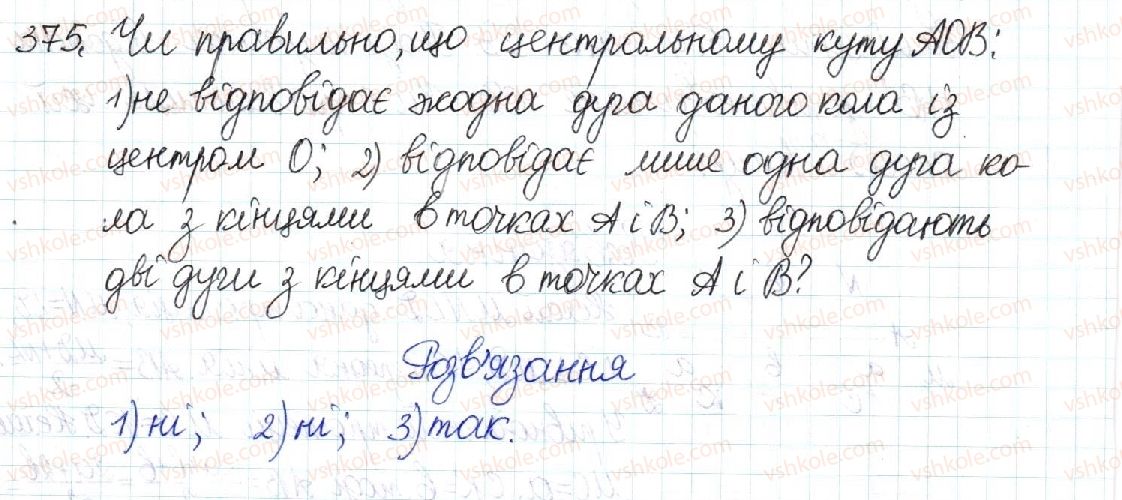 375. Чи правильно, що центральному куту AOB:
1) не відповідає жодна дуга даного кола із
центром O; 2) відповідає лише одна дуга ко-
ла з кінцями в точках A і B; 3) відповідають
дві дуги з кінцями в точках A і B?
Розв'язання
1) ні; 2) ні; 3) так.